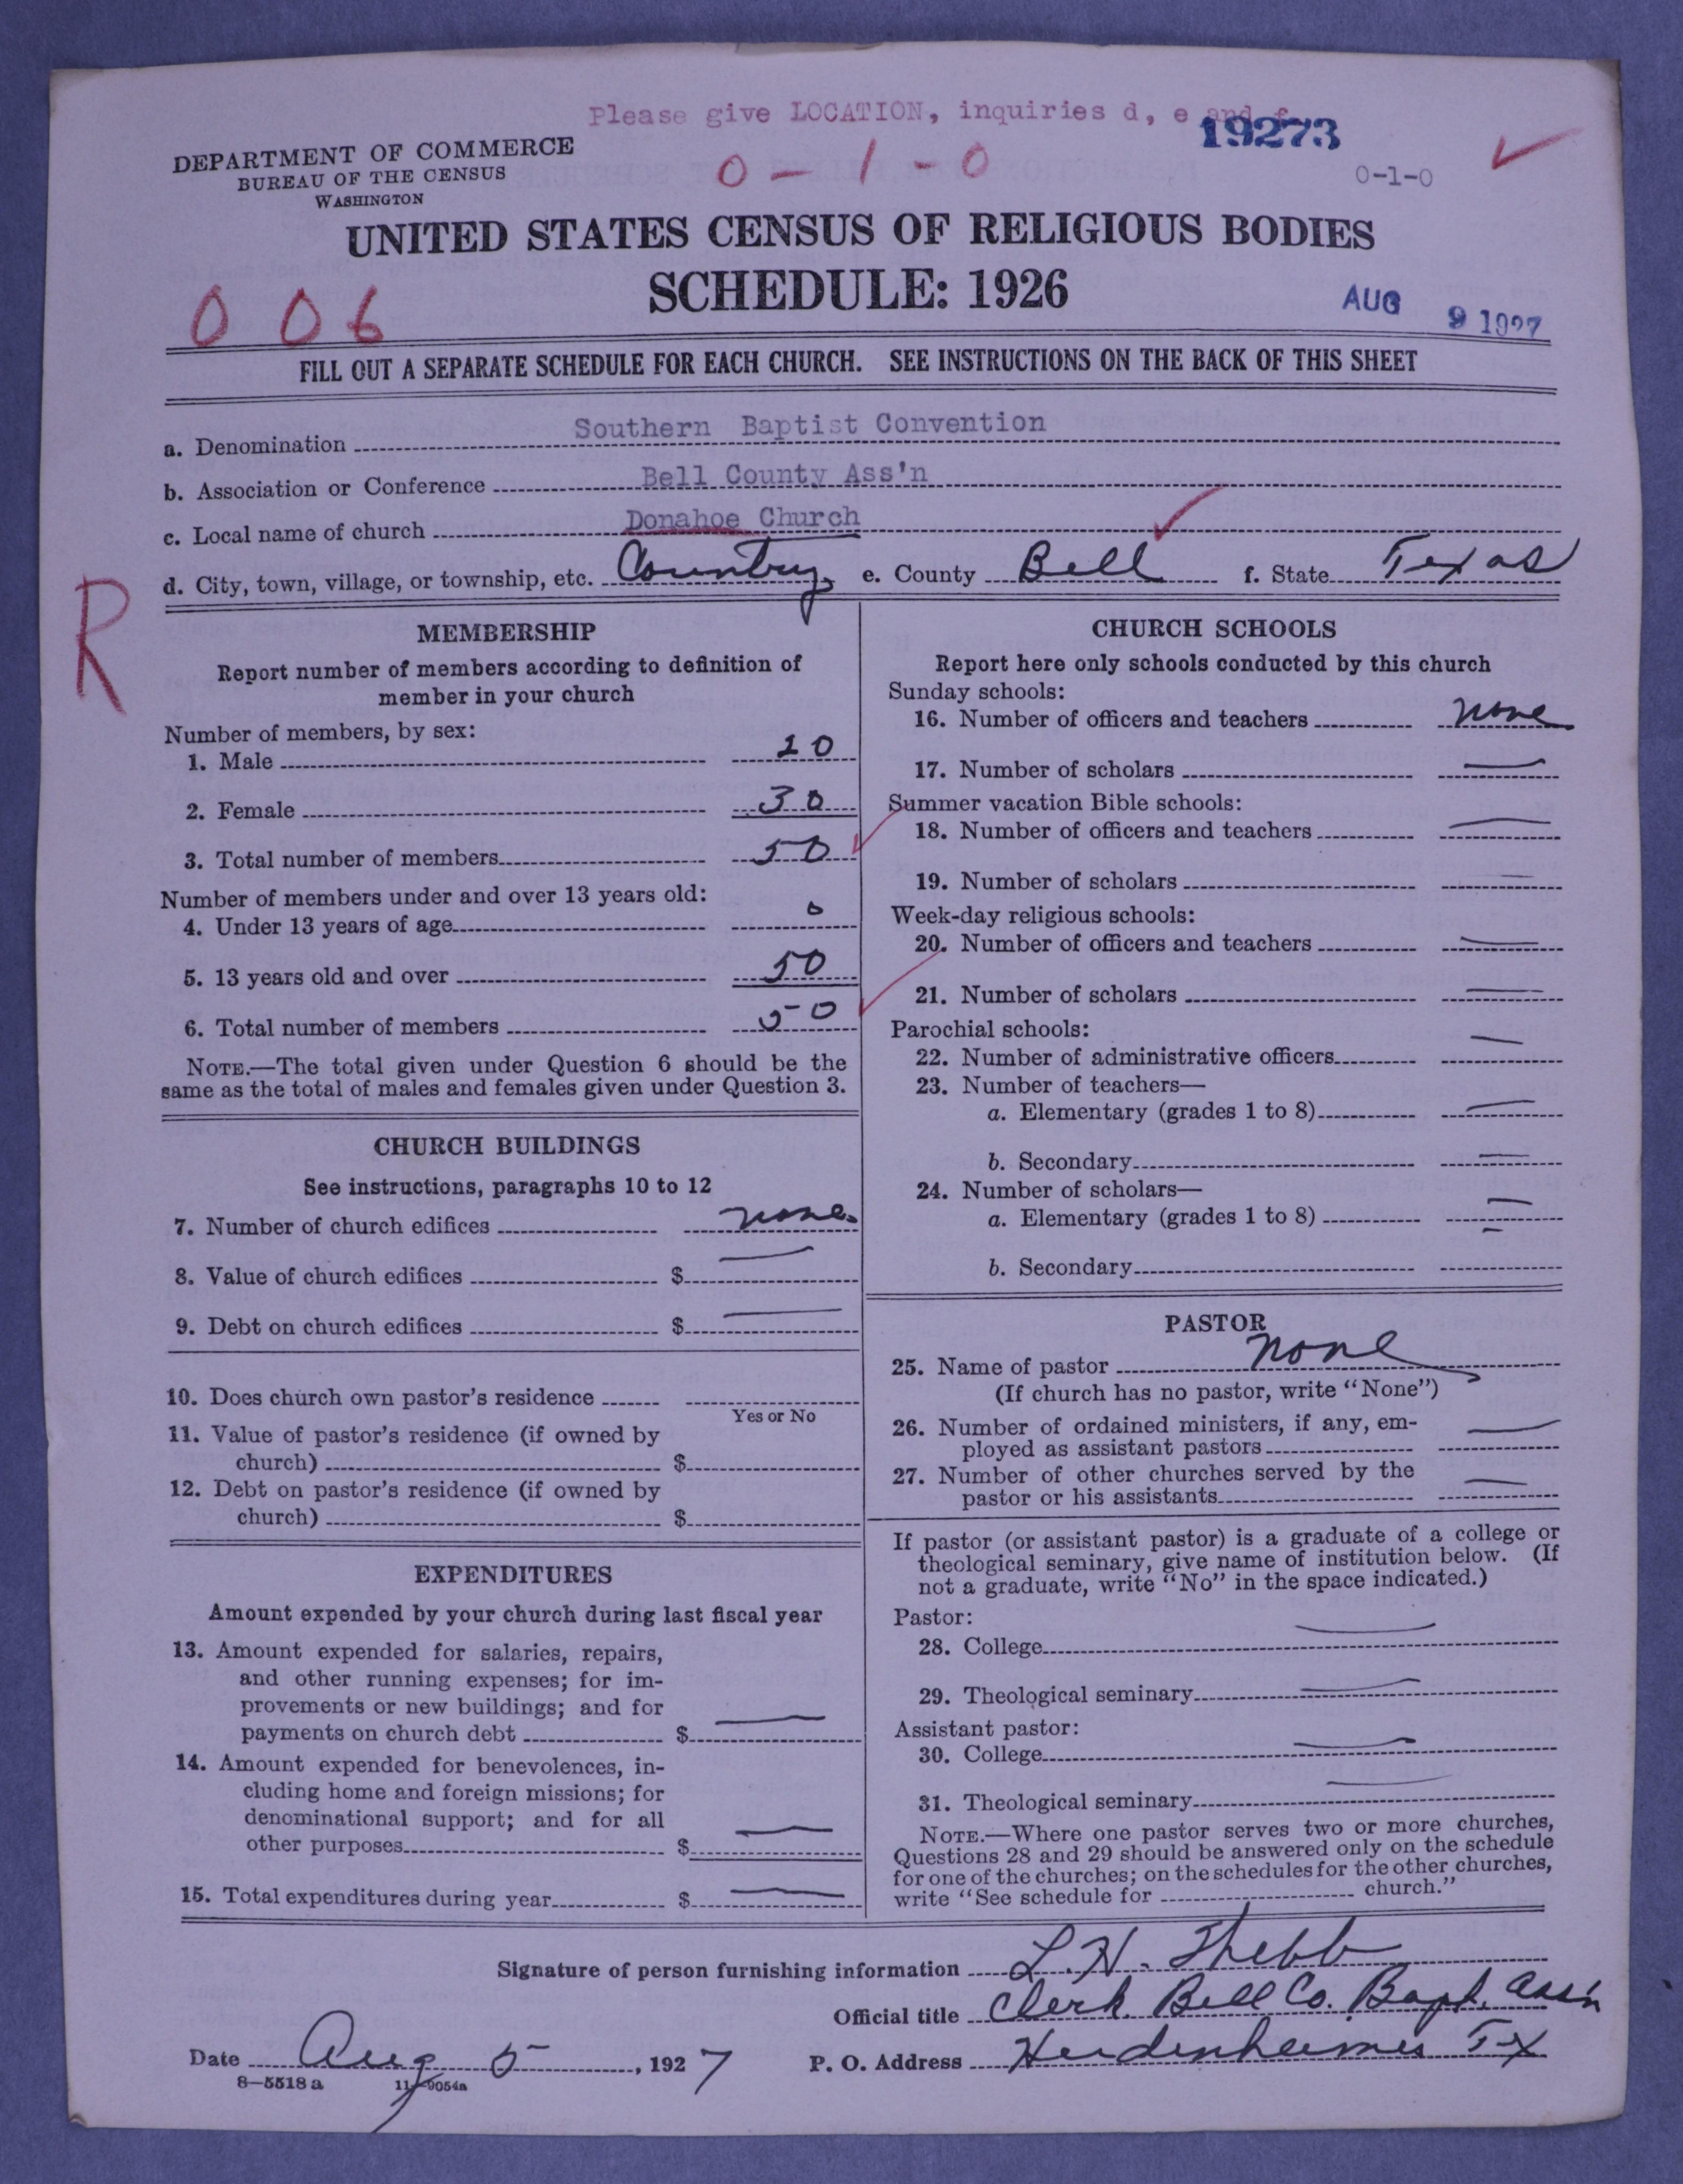 Please give LOCATION, inquiries d, e and f
19273
DEPARTMENT OF COMMERCE
BUREAU OF THE CENSUS
WASHINGTON
0 - 1 - 0
0-1-0
UNITED STATES CENSUS OF RELIGIOUS BODIES
SCHEDULE: 1926
0 0 6
AUG 9 1927
FILL OUT A SEPARATE SCHEDULE FOR EACH CHURCH. SEE INSTRUCTIONS ON THE BACK OF THIS SHEET
a. Denomination Southern Baptist Convention
b. Association or Conference Bell County Ass'n
c. Local name of church Donahoe Church
d. City, town, village, or township, etc. Country e. County Bell f. State Texas
R
MEMBERSHIP
Report number of members according to definition of
member in your church
Number of members, by sex:
1. Male 20
2. Female 30
3. Total number of members 50
Number of members under and over 13 years old:
4. Under 13 years of age 0
5. 13 years old and over 50
6. Total number of members 50
NOTE.—The total given under Question 6 should be the
same as the total of males and females given under Question 3.
CHURCH BUILDINGS
See instructions, paragraphs 10 to 12
7. Number of church edifices none
8. Value of church edifices $ —
9. Debt on church edifices $ —
10. Does church own pastor's residence
Yes or No
11. Value of pastor's residence (if owned by
church) $
12. Debt on pastor's residence (if owned by
church) $
EXPENDITURES
Amount expended by your church during last fiscal year
13. Amount expended for salaries, repairs,
and other running expenses; for im-
provements or new buildings; and for
payments on church debt $ —
14. Amount expended for benevolences, in-
cluding home and foreign missions; for
denominational support; and for all
other purposes $ —
15. Total expenditures during year $ —
CHURCH SCHOOLS
Report here only schools conducted by this church
Sunday schools:
16. Number of officers and teachers none
17. Number of scholars —
Summer vacation Bible schools:
18. Number of officers and teachers —
19. Number of scholars —
Week-day religious schools:
20. Number of officers and teachers —
21. Number of scholars —
Parochial schools:
22. Number of administrative officers —
23. Number of teachers—
a. Elementary (grades 1 to 8) —
b. Secondary —
24. Number of scholars—
a. Elementary (grades 1 to 8) —
b. Secondary —
PASTOR
25. Name of pastor none
(If church has no pastor, write "None")
26. Number of ordained ministers, if any, em-
ployed as assistant pastors —
27. Number of other churches served by the
pastor or his assistants —
If pastor (or assistant pastor) is a graduate of a college or
theological seminary, give name of institution below. (If
not a graduate, write "No" in the space indicated.)
Pastor:
28. College —
29. Theological seminary —
Assistant pastor:
30. College —
31. Theological seminary —
NOTE.—Where one pastor serves two or more churches,
Questions 28 and 29 should be answered only on the schedule
for one of the churches; on the schedules for the other churches,
write "See schedule for church."
Signature of person furnishing information L. H.
Official title Clerk Bell Co. Bapt. Ass'n
Date Aug 5, 1927 P. O. Address Heidenheimer Tx
8—5518 a 11—9054a